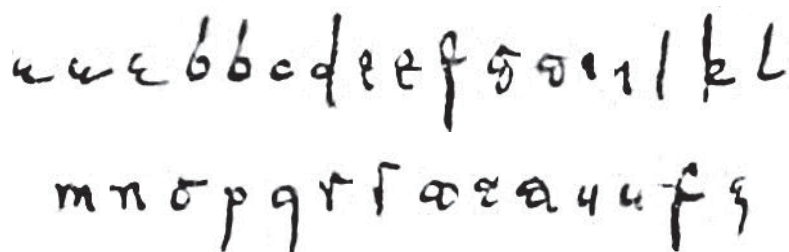 a a a b b c d e e f g g i i l k l
m n o p q r s t t t u u x z